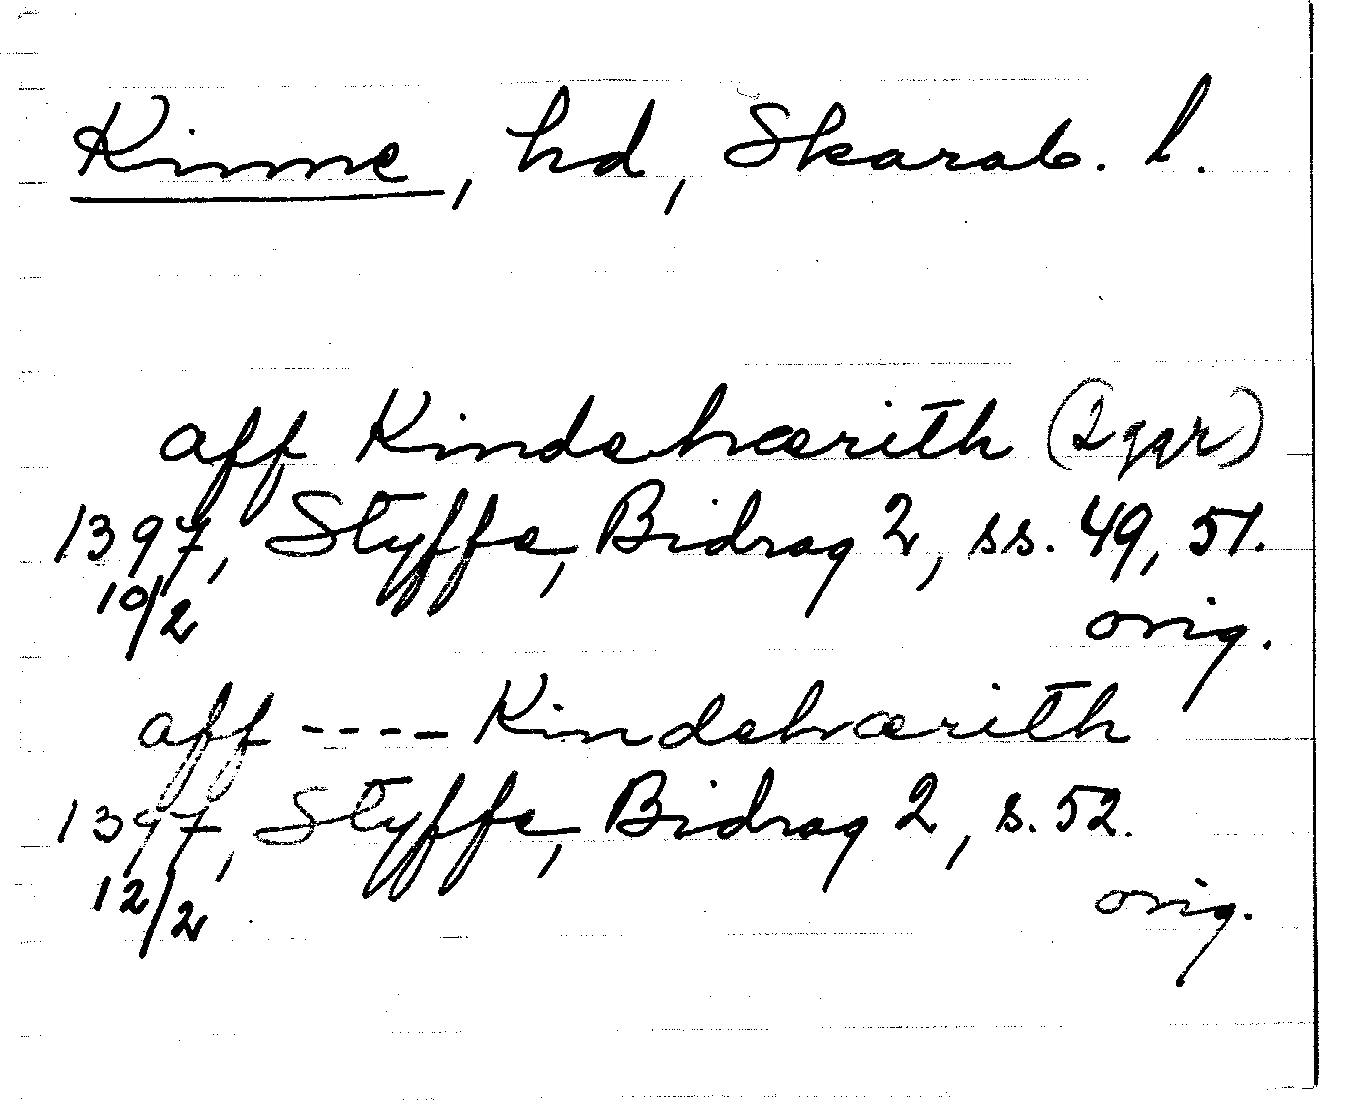 Kinne, hd, Skarab. l.
aff Kindehærith (2 ggr)
1397, Styffe, Bidrag 2, ss. 49, 51.
10/2 orig.
aff ---- Kindehærith
1397, Styffe, Bidrag 2, s. 52.
12/2 orig.